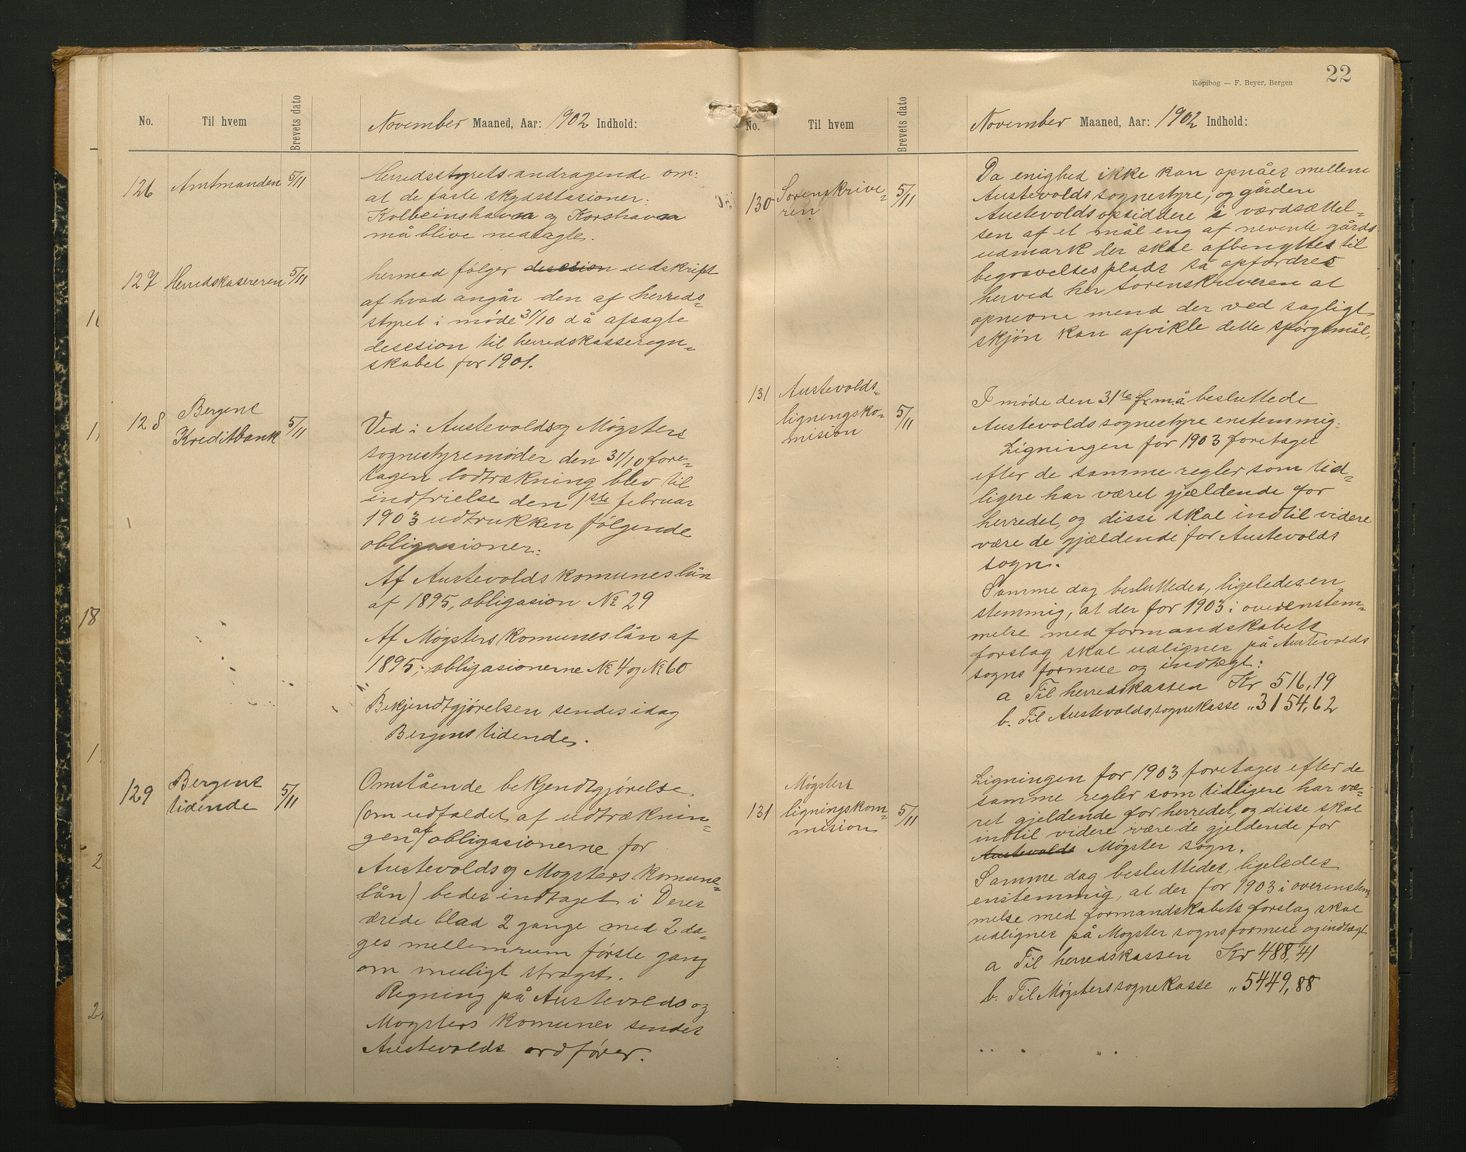 No. Til hvem Brevets dato November Maaned, Aar: 1902 Indhold:
126 Amtmanden 5/11 Herredsstyrets andragende om:
at de faste skydsstasioner:
Kolbeinshavn og Korshavn
må blive nedlagte.
127 Herredskasereren 5/11 hermed følger desesion udskrift
af hvad angår den af herreds-
styret i møde 31/10 då afsagte
desesion til herredskasseregn-
skabet for 1901.
128 Bergens Kreditbank 5/11 Ved i Austevolds og Møgsters
sognestyremøder den 31/10 fore-
tagen lodtrækning blev til
indfrielse den 1ste februar
1903 udtrukken følgende
obligasioner:
Af Austevolds komuneslån
af 1895, obligasion № 29
Af Møgsters komuneslån af
1895, obligasionerne № 4 og № 60
Bekjendtgjørelsen sendes idag
Bergenstidende.
129 Bergens tidende 5/11 Omstående bekjendtgjørelse
(om udfaldet af udtræknin-
gen af obligasionerne for
Austevolds og Møgsters komune-
lån) bedes indtaget i Deres
ærede blad 2 gange med 2 da-
ges mellemrum første gang
om muligt strags.
Regning på Austevolds og
Møgsters komuner sendes
Austevolds ordfører.
Kopibog — F. Beyer, Bergen 22
No. Til hvem Brevets dato November Maaned, Aar: 1902 Indhold:
130 Sorenskrive-
ren 5/11 Da enighed ikke kan opnåes mellem
Austevolds sognestyre, og gården
Austevolds opsiddere i værdsættel-
sen af et mål eng af nevnte gårds
udmark der skal afbenyttes til
begravelsesplads så opfordres
herved hr sorenskriveren at
opnevne mend der ved sagligt
skjøn kan afvikle dette spørgsmål.
131 Austevolds
ligningsko-
mision 5/11 I møde den 31te f. må besluttede
Austevolds sognestyre enstemmig:
Ligningen for 1903 foretages
efter de samme regler som tid-
ligere har været gjældende for
herredet, og disse skal indtil videre
være de gjældende for Austevolds
sogn.
Samme dag besluttedes, ligeledes en
stemmig, at der for 1903 i overenstem-
melse med formandskabets
forslag skal udlignes på Austevolds
sogns formue og indtægt:
a Til herredskassen Kr 516,19
b. Til Austevolds sognekasse „ 3154,62
131 Møgsters
ligningskom-
mision 5/11 Ligningen for 1903 foretages efter de
samme regler som tidligere har væ-
ret gjeldende for herredet, og disse skal
indtil videre være de gjeldende for
Austevolds Møgster sogn.
Samme dag besluttedes, ligeledes
enstemmig, at der for 1903 i overenstem
melse med formandskabets forslag skal
udlignes på Møgster sogns formue og indtægt
a Til herredskassen Kr 488,41
b. Til Møgsters sognekasse „ 5449,88